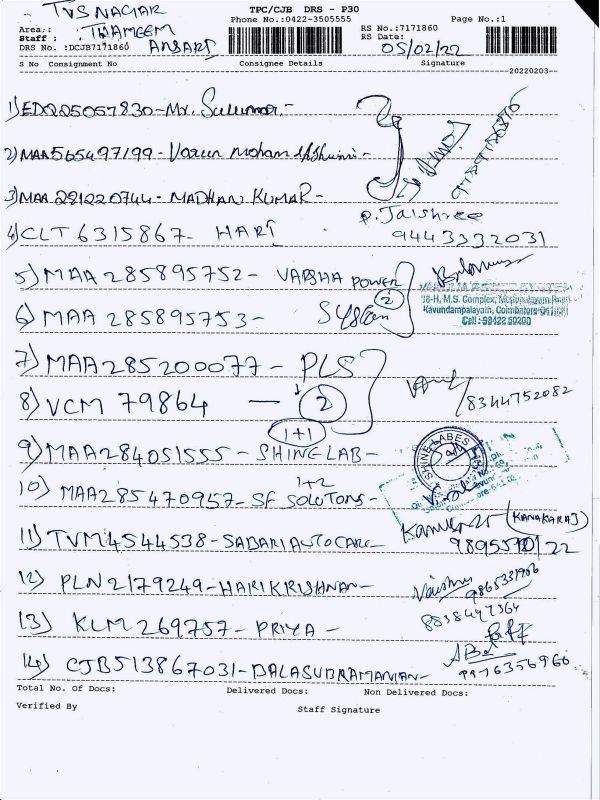 TVS NAGAR
TPC/CJB DRS - P30
Phone No.:0422-3505555
Page No.:1
Area;:
Staff : THAMEEM
ANSARI
DRS No. :DCJB7171860
RS No.:7171860
RS Date:
05/02/22
S No Consignment No Consignee Details Signature
20220203
1) EDQ25057830-Mr.
2) MAA565497199- Varun Mohan
3) MAA 281220744- MADHAN KUMAR-
P. Jaishree
4) CLT 6315867- HARI
9443332031
5) MAA 285895752- VARSHA POWER
6) MAA 285895753- System
2
18-H, M.S. Complex,
Kavundampalayam, Coimbatore
Cell : 98422 50200
7) MAA285200077- PLS
8) VCM 79864 - 2
8344752082
1+1
9) MAA284051555- SHINE LAB-
SHINE LABES
1+2
10) MAA285470957- SF SOLUTONS-
11) TVM4544538- SABARI AUTO CARE-
(KANAKARAJ)
12) PLN2179249-HARIKRISHNAN-
9865331906
8838447364
13) KLM 269757- PRIYA -
14) CJB513867031-BALASUBRAMANIAN-
Total No. Of Docs: Delivered Docs: Non Delivered Docs:
Verified By Staff Signature